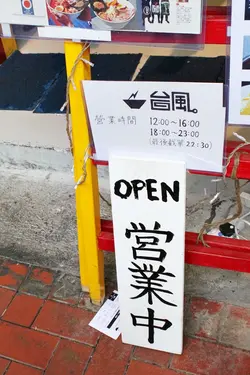 台風。
營業時間 12:00~16:00
18:00~23:00
(最後截單 22:30)
OPEN
営業中